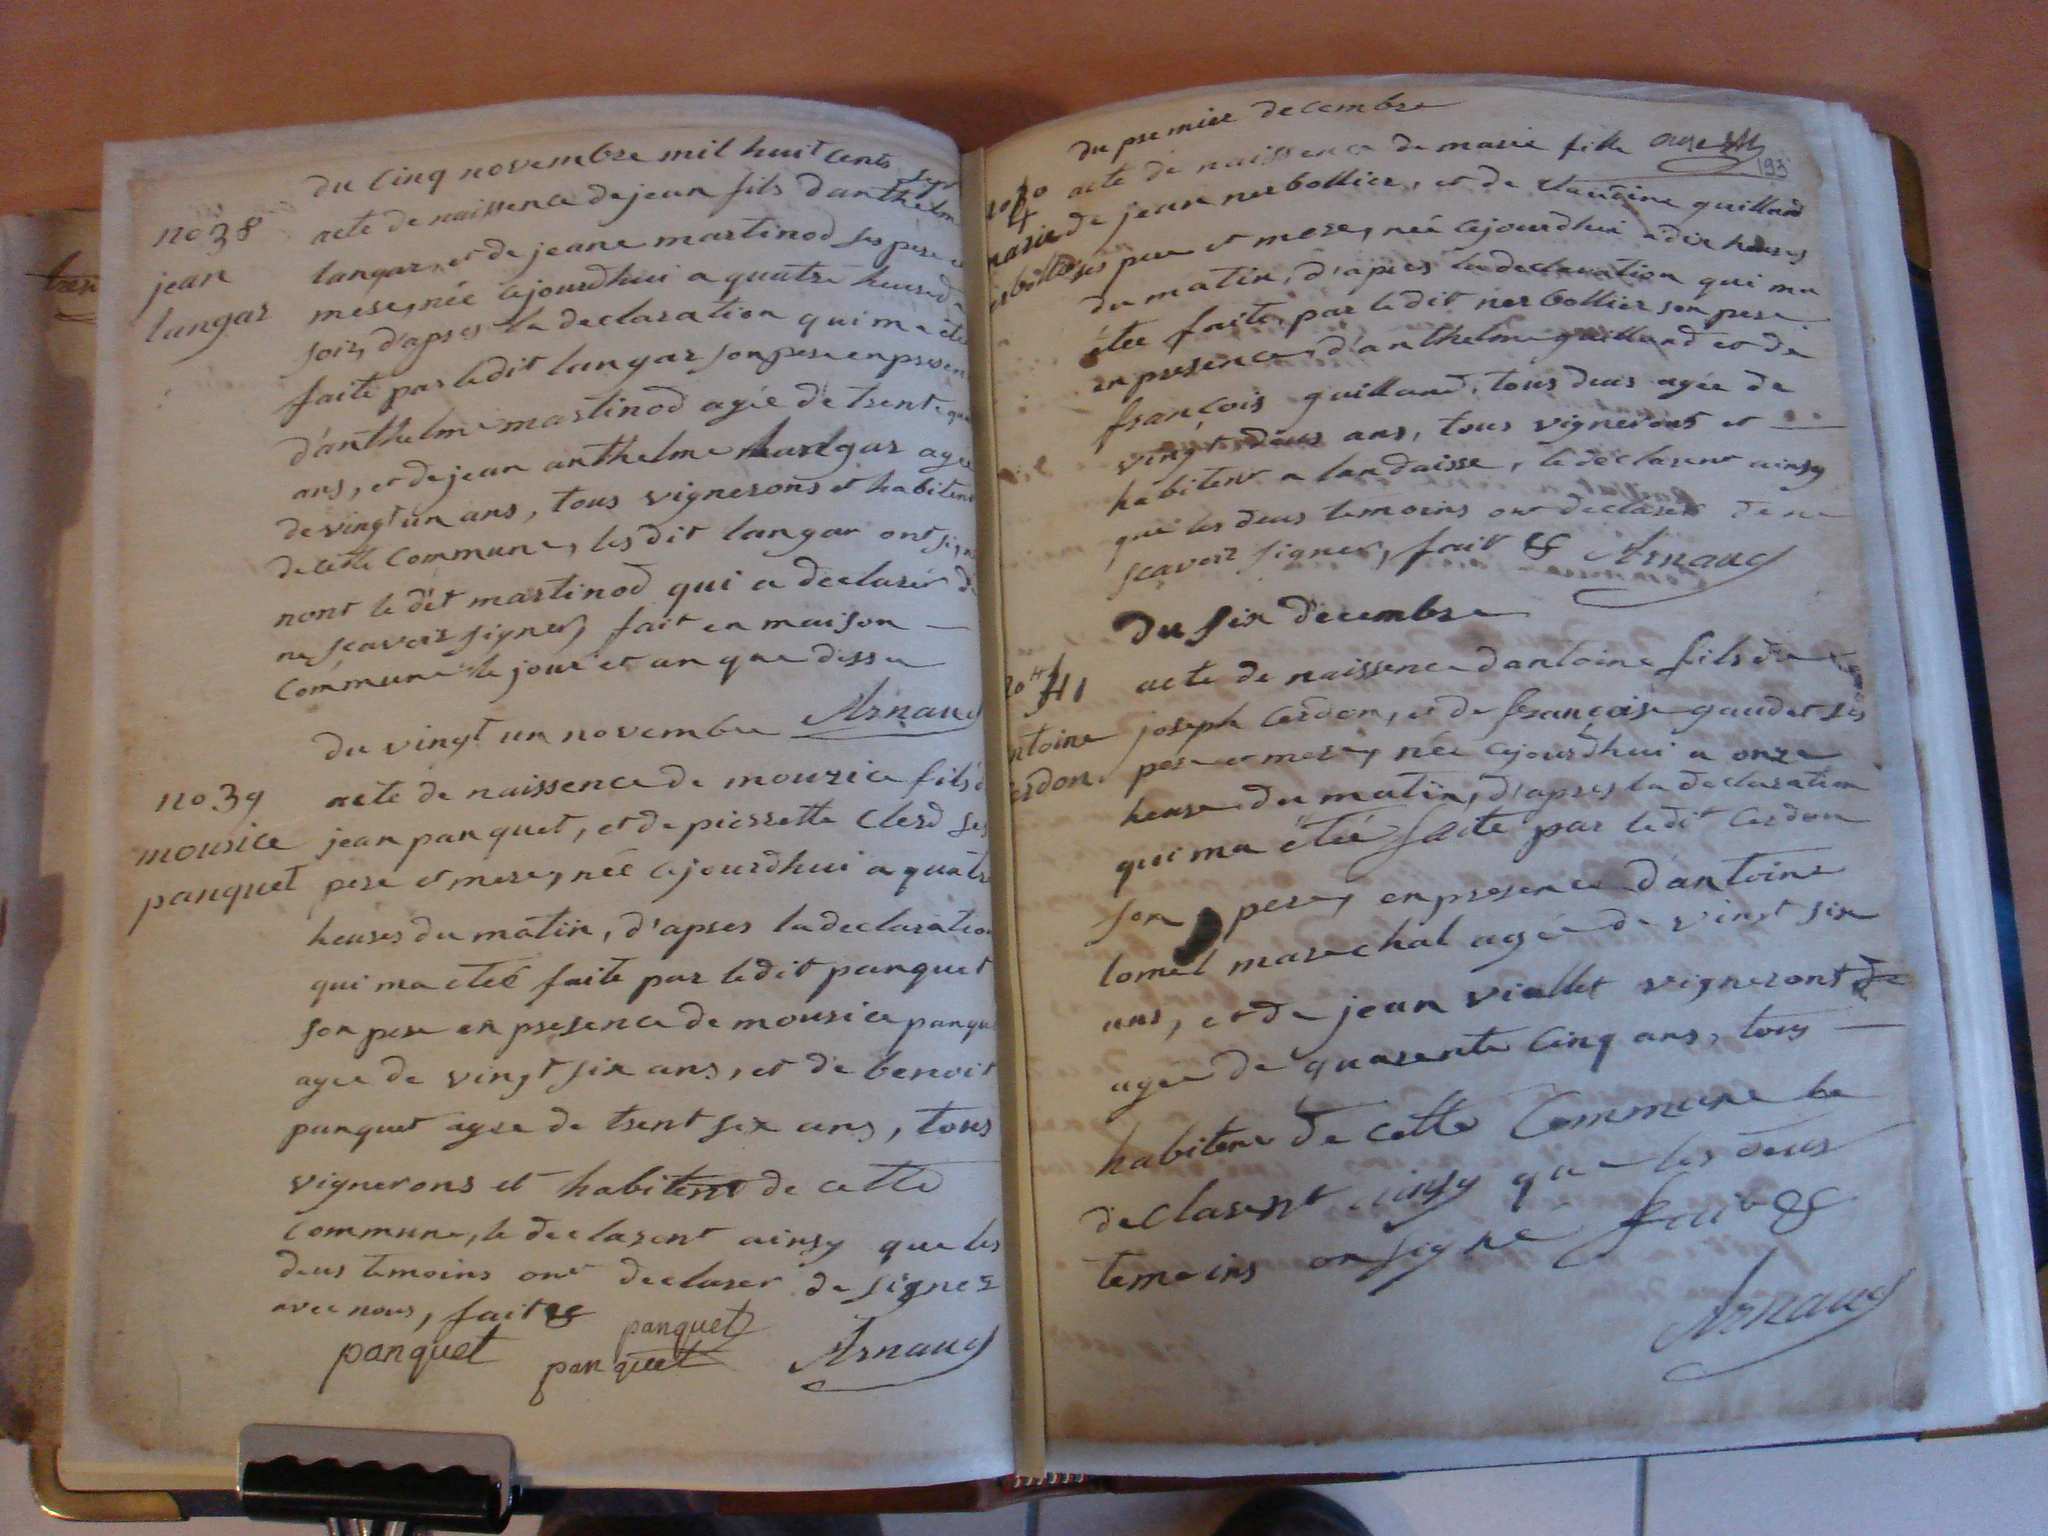 du cinq novembre mil huit cents sept
no 38
acte de naissence de jean fils d'anthelme
jean
langar, et de jeane martinod ses pere et
langar
mere, née cejourdhui a quatre heure du
soir, d'apres la declaration qui ma etée
faite par ledit langar son pere en presence
d'anthelme martinod agée de trente
ans, et de jean anthelme langar agée
de vingt un ans, tous vignerons et habitent
de cette commune, les dit langar ont signé
nont le dit martinod qui a declarér de
ne scavoir signer, fait en maison
commune le jour et an que dessu
Arnaud
du vingt un novembre
no 39
acte de naissence de mourice fils de
mourice
jean panquet, et de pierrette Clerd ses
panquet
pere et mere, née cejourdhui a quatre
heures du matin, d'apres la declaration
qui ma etée faite par ledit panquet
son pere en presence de mourice panquet
agée de vingt six ans, et de benoit
panquet agée de trent six ans, tous
vignerons et habitent de cette
commune, le declarent ainsy que les
deus temoins ont declarer de signer
avec nous, fait &
panquet
panquet
panquet
Arnaud
du premier decembre
193
no 40
acte de naissence de marie fille
marie
de jean nerbollier, et de claudine guilland
nerbollier
ses pere et mere, née cejourdhui a dix heures
du matin, d'apres la declaration qui ma
étée faite par ledit nerbollier son pere
en presence d'anthelme guilland et de
françois guilland, tous deus agée de
vingt deus ans, tous vignerons et
habitent a landaisse, le declarent ainsy
que les deus temoins ont declarer de ne
scavoir signer, fait &
Arnaud
du six decembre
no 41
acte de naissence d'antoine fils de
antoine
joseph Cerdon, et de françoise gaudet ses
cerdon
pere et mere, née cejourdhui a onze
heure du matin, d'apres la declaration
qui ma étée faite par ledit Cerdon
son pere, en presence d'antoine
lomel marechal agée de vingt six
ans, et de jean viallet vigneront
agée de quarente cinq ans, tous
habitent de cette commune le
declarent ainsy que les deus
temoins on signe fait &
Arnaud